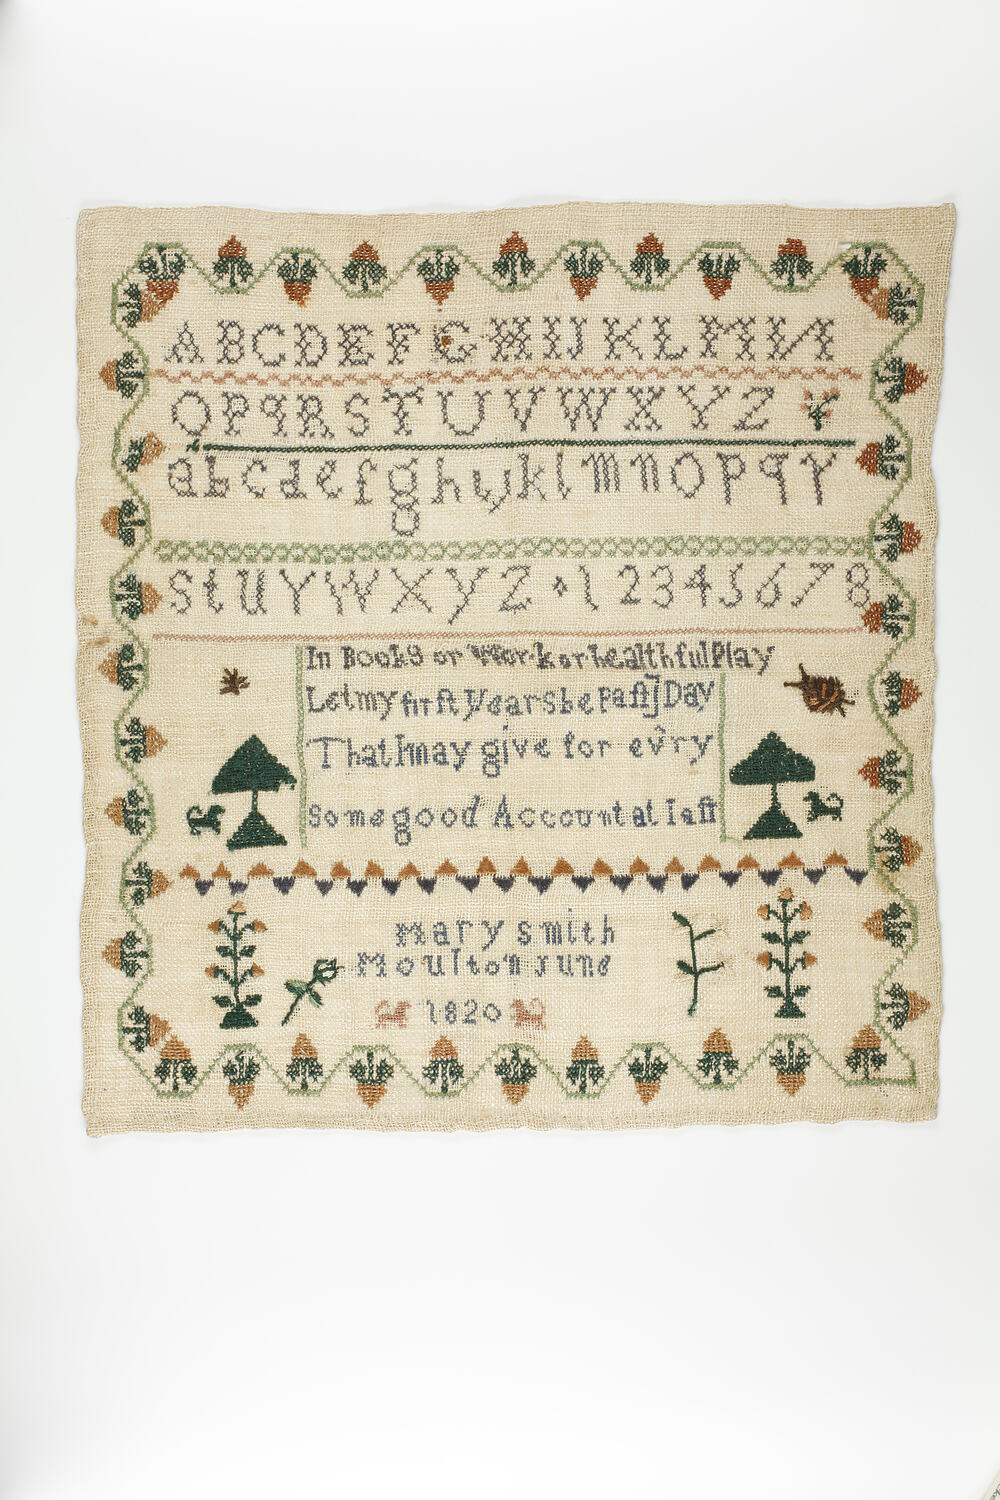 A B C D E F G H I J K L M N
O P q R S T U V W X Y Z
a b c d e f g h y k l m n o p q r
s t u v w x y z 1 2 3 4 5 6 7 8
In Books or Work or healthful Play
Let my firſt Years be Paſt] Day
That I may give for ev'ry
Some good Account at laſt
Mary smith
Moulton June
1820